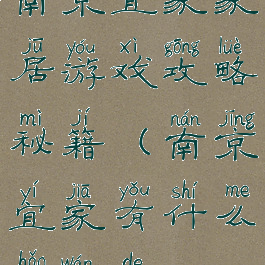 南京宜家家
jū yóu xì gōng lüè
居游戏攻略
mì jí nán jīng
秘籍（南京
yí jiā yǒu shí me
宜家有什么
hǎo wán de